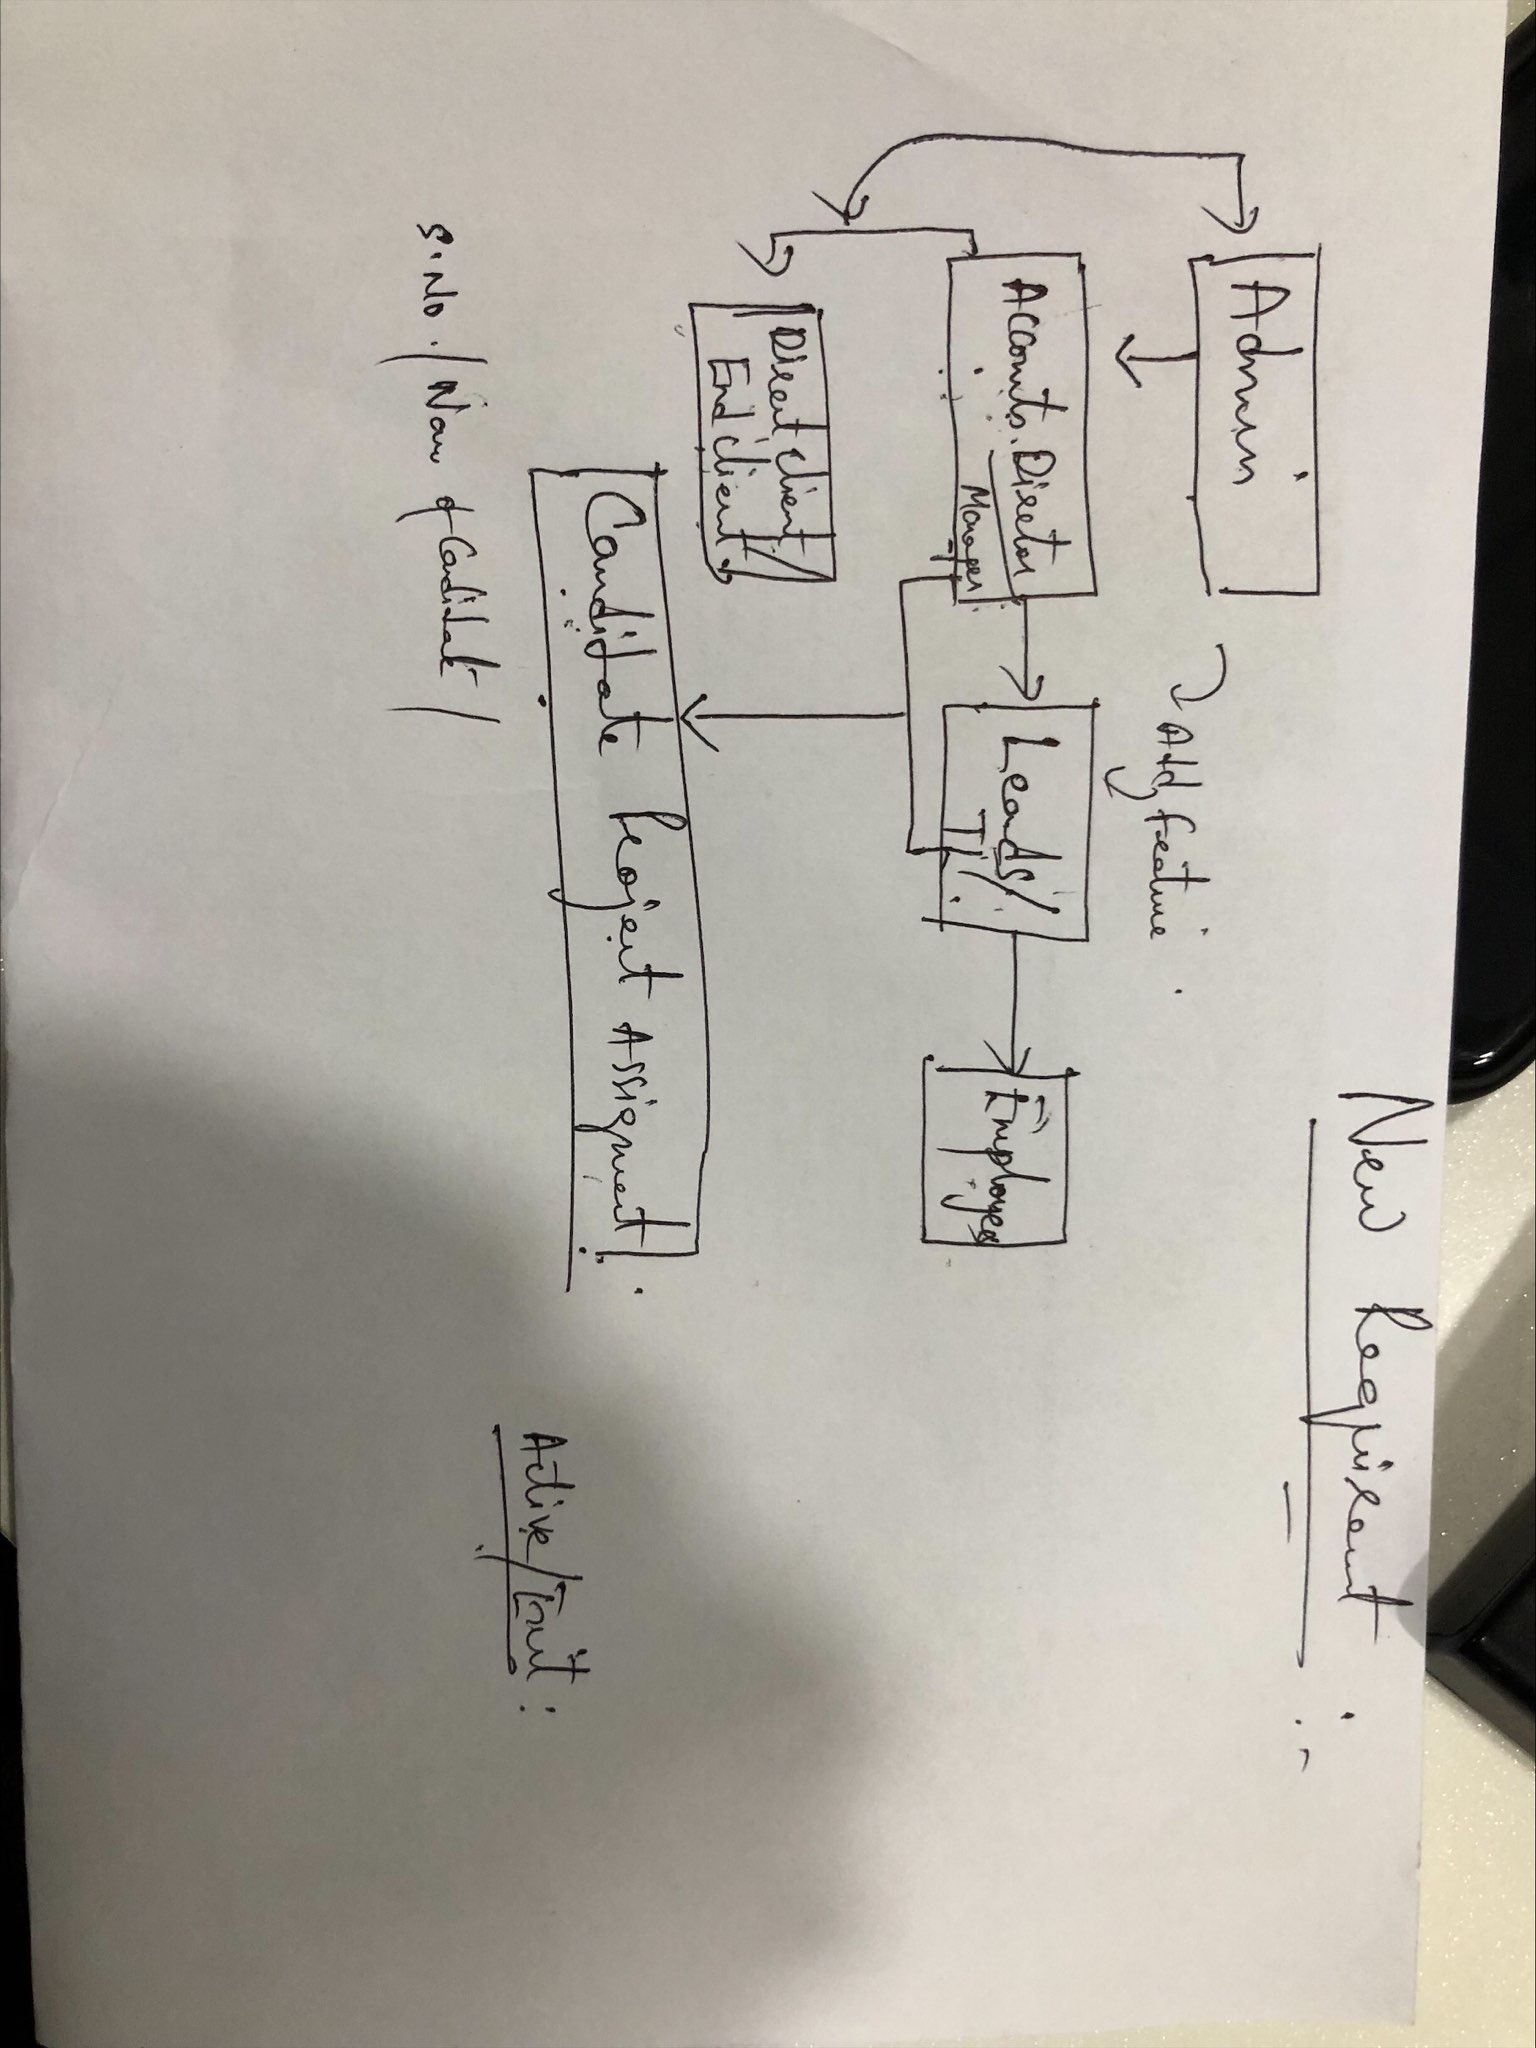 New Requirement :-
Admin
Add Feature
Accounts. Director
Manager
Leads/
TL
Employees
Direct Client/
End Client
Candidate Project Assignment
Active/Exit :
S.No. / Name of Candidate /